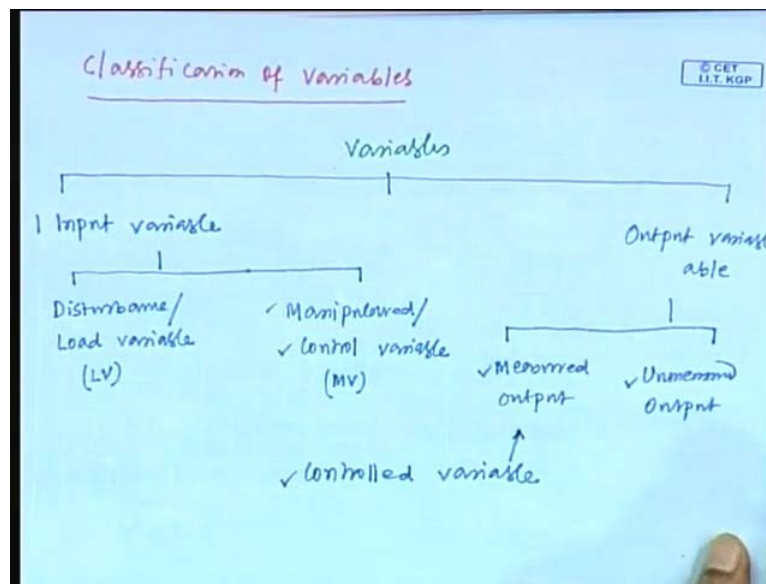 Classification of Variables
© CET
I.I.T. KGP
Variables
Input variable
Output variable
able
Disturbance/
Load variable
(LV)
✓ Manipulated/
✓ Control variable
(MV)
✓ Measured
output
✓ Unmeasured
Output
✓ Controlled variable